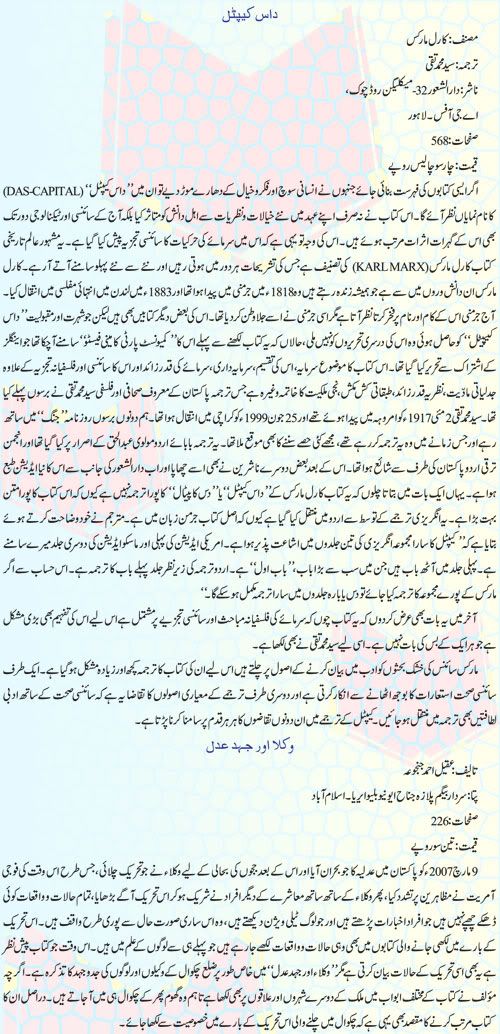 داس کیپٹل
مصنف: کارل مارکس
ترجمہ: سید محمد تقی
ناشر: دارالشعور 32-میکلیگن روڈ چوک،
اے جی آفس۔ لاہور
صفحات: 568
قیمت: چار سو چالیس روپے
اگر ایسی کتابوں کی فہرست بنائی جائے جنہوں نے انسانی سوچ اور فکر و خیال کے دھارے موڑ دیے تو ان میں ’’داس کیپٹل‘‘ (DAS-CAPITAL)
کا نام نمایاں نظر آئے گا۔ اس کتاب نے نہ صرف اپنے عہد میں نئے خیالات و نظریات سے اہل دانش کو متاثر کیا بلکہ آج کے سائنسی اور ٹیکنالوجی دور تک
بھی اس کے گہرے اثرات مرتب ہوئے ہیں۔ اس کی وجہ تو یہی ہے کہ اس میں سرمائے کی حرکیات کا سائنسی تجزیہ پیش کیا گیا ہے۔ یہ مشہور عالم تاریخی
کتاب کارل مارکس (KARL MARX) کی تصنیف ہے جس کی تشریحات ہر دور میں ہوتی رہیں اور نئے سے نئے پہلو سامنے آتے رہے۔ کارل
مارکس ان دانش وروں میں سے ہے جو ہمیشہ زندہ رہتے ہیں وہ 1818ء میں جرمنی میں پیدا ہوا تھا اور 1883ء میں لندن میں انتہائی مفلسی میں انتقال کیا۔
آج جرمنی اس کے کام اور نام پر فخر کرتا نظر آتا ہے مگر اسی جرمنی نے اسے جلاوطن کر دیا تھا۔ اس کی بعض دیگر کتابیں بھی ہیں لیکن جو شہرت اور مقبولیت ’’داس
کیپٹل‘‘ کو حاصل ہوئی وہ اس کی دوسری تحریروں کو نہیں ملی، حالاں کہ یہ کتاب لکھنے سے پہلے اس کا ’’کمیونسٹ پارٹی کا مینی فیسٹو‘‘ سامنے آچکا تھا جو اینگلز
کے اشتراک سے تحریر کیا گیا تھا۔ اس کتاب کا موضوع سرمایہ، اس کی تقسیم، سرمایہ داری، سرمائے کی قدر زائد اور اس کا سائنسی اور فلسفیانہ تجزیہ کے علاوہ
جدلیاتی مادیت، نظریہ قدر زائد، طبقاتی کش مکش، نجی ملکیت کا خاتمہ وغیرہ ہے جس ترجمہ پاکستان کے معروف صحافی اور فلسفی سید محمد تقی نے برسوں پہلے کیا
تھا۔ سید محمد تقی 2 مئی 1917ء کو امروہہ میں پیدا ہوئے تھے اور 25 جون 1999ء کو کراچی میں انتقال ہوا تھا۔ ہم دونوں برسوں روزنامہ ’’جنگ‘‘ میں ساتھ
رہے اور جس زمانے میں وہ یہ ترجمہ کر رہے تھے، مجھے کئی حصے سننے کا بھی موقع ملا تھا۔ یہ ترجمہ بابائے اردو مولوی عبدالحق کے اصرار پر کیا گیا تھا اور انجمن
ترقی اردو پاکستان کی طرف سے شائع ہوا تھا۔ اس کے بعد بعض دوسرے ناشرین نے بھی اسے چھاپا اور اب دارالشعور کی جانب سے اس کا نیا ایڈیشن طبع
ہوا ہے۔ یہاں ایک بات میں بتاتا چلوں کہ یہ کتاب کارل مارکس کے ’’داس کیپٹل‘‘ یا ’’دس کاپیٹال‘‘ کا پورا ترجمہ نہیں ہے کیوں کہ اس کتاب کا پورا متن
بہت بڑا ہے۔ یہ انگریزی ترجمے کے توسط سے اردو میں منتقل کیا گیا ہے کیوں کہ اصل کتاب جرمن زبان میں ہے۔ مترجم نے خود وضاحت کرتے ہوئے
بتایا ہے کہ ’’کیپٹل کا سارا مجموعہ انگریزی کی تین جلدوں میں اشاعت پذیر ہوا ہے۔ امریکی ایڈیشن کی پہلی اور ماسکو ایڈیشن کی دوسری جلد میرے سامنے
ہے۔ پہلی جلد میں آٹھ باب ہیں جن میں سب سے بڑا باب، ’’باب اول‘‘ ہے۔ اردو ترجمہ کی زیر نظر جلد پہلے باب کا ترجمہ ہے۔ اس حساب سے اگر
مارکس کے پورے مجموعہ کا ترجمہ کیا جائے تو دس یا بارہ جلدوں میں سارا ترجمہ مکمل ہو سکے گا۔‘‘
آخر میں یہ بات بھی عرض کر دوں کہ یہ کتاب چوں کہ سرمائے کی فلسفیانہ مباحث اور سائنسی تجزیے پر مشتمل ہے اس لیے اس کی تفہیم بھی بڑی مشکل
ہے جو ہر ایک کے بس کی بات نہیں ہے۔ اسی لیے سید محمد تقی نے بھی لکھا ہے۔
مارکس سائنس کی خشک بحثوں کو ادب میں بیان کرنے کے اصول پر چلتے ہیں اس لیے ان کی کتاب کا ترجمہ کچھ اور زیادہ مشکل ہو گیا ہے۔ ایک طرف
سائنسی صحت استعارات کا بوجھ اٹھانے سے انکار کرتی ہے اور دوسری طرف ترجمے کے معیاری اصولوں کا تقاضا یہ ہے کہ سائنسی صحت کے ساتھ ادبی
لطافتیں بھی ترجمہ میں منتقل ہو جائیں۔ کیپٹل کے ترجمے میں ان دونوں تقاضوں کا ہر ہر قدم پر سامنا کرنا پڑتا ہے۔
وکلا اور جہد عدل
تالیف: عقیل احمد جنجوعہ
پتا: سردار بیگم پلازہ جناح ایونیو بلیو ایریا۔ اسلام آباد
صفحات: 226
قیمت: تین سو روپے
9 مارچ 2007ء کو پاکستان میں عدلیہ کا جو بحران آیا اور اس کے بعد ججوں کی بحالی کے لیے وکلاء نے جو تحریک چلائی، جس طرح اس وقت کی فوجی
آمریت نے مظاہرین پر تشدد کیا، پھر وکلاء کے ساتھ ساتھ معاشرے کے دیگر افراد نے شریک ہو کر اس تحریک کو آگے بڑھایا، تمام حالات و واقعات کوئی
ڈھکے چھپے نہیں ہیں جو افراد اخبارات پڑھتے ہیں اور جو لوگ ٹیلی ویژن دیکھتے ہیں، وہ اس ساری صورت حال سے پوری طرح واقف ہیں۔ اس تحریک
کے بارے میں لکھی جانے والی کتابوں میں بھی وہی حالات و واقعات لکھے جا رہے ہیں جو پہلے ہی سے لوگوں کے علم میں ہیں۔ اس وقت جو کتاب پیش نظر
ہے یہ بھی اسی تحریک کے حالات بیان کرتی ہے مگر ’’وکلاء اور جہد عدل‘‘ میں خاص طور پر ضلع چکوال کے وکیلوں اور لوگوں کی جدوجہد کا تذکرہ ہے۔ اگرچہ
مؤلف نے کتاب کے مختلف ابواب میں ملک کے دوسرے شہروں اور علاقوں پر بھی لکھا ہے تاہم وہ گھوم پھر کے چکوال ہی میں آ جاتے ہیں۔ دراصل ان کا
کتاب مرتب کرنے کا مقصد بھی یہی ہے کہ چکوال میں چلنے والی اس تحریک کے بارے میں خصوصیت سے لکھا جائے۔